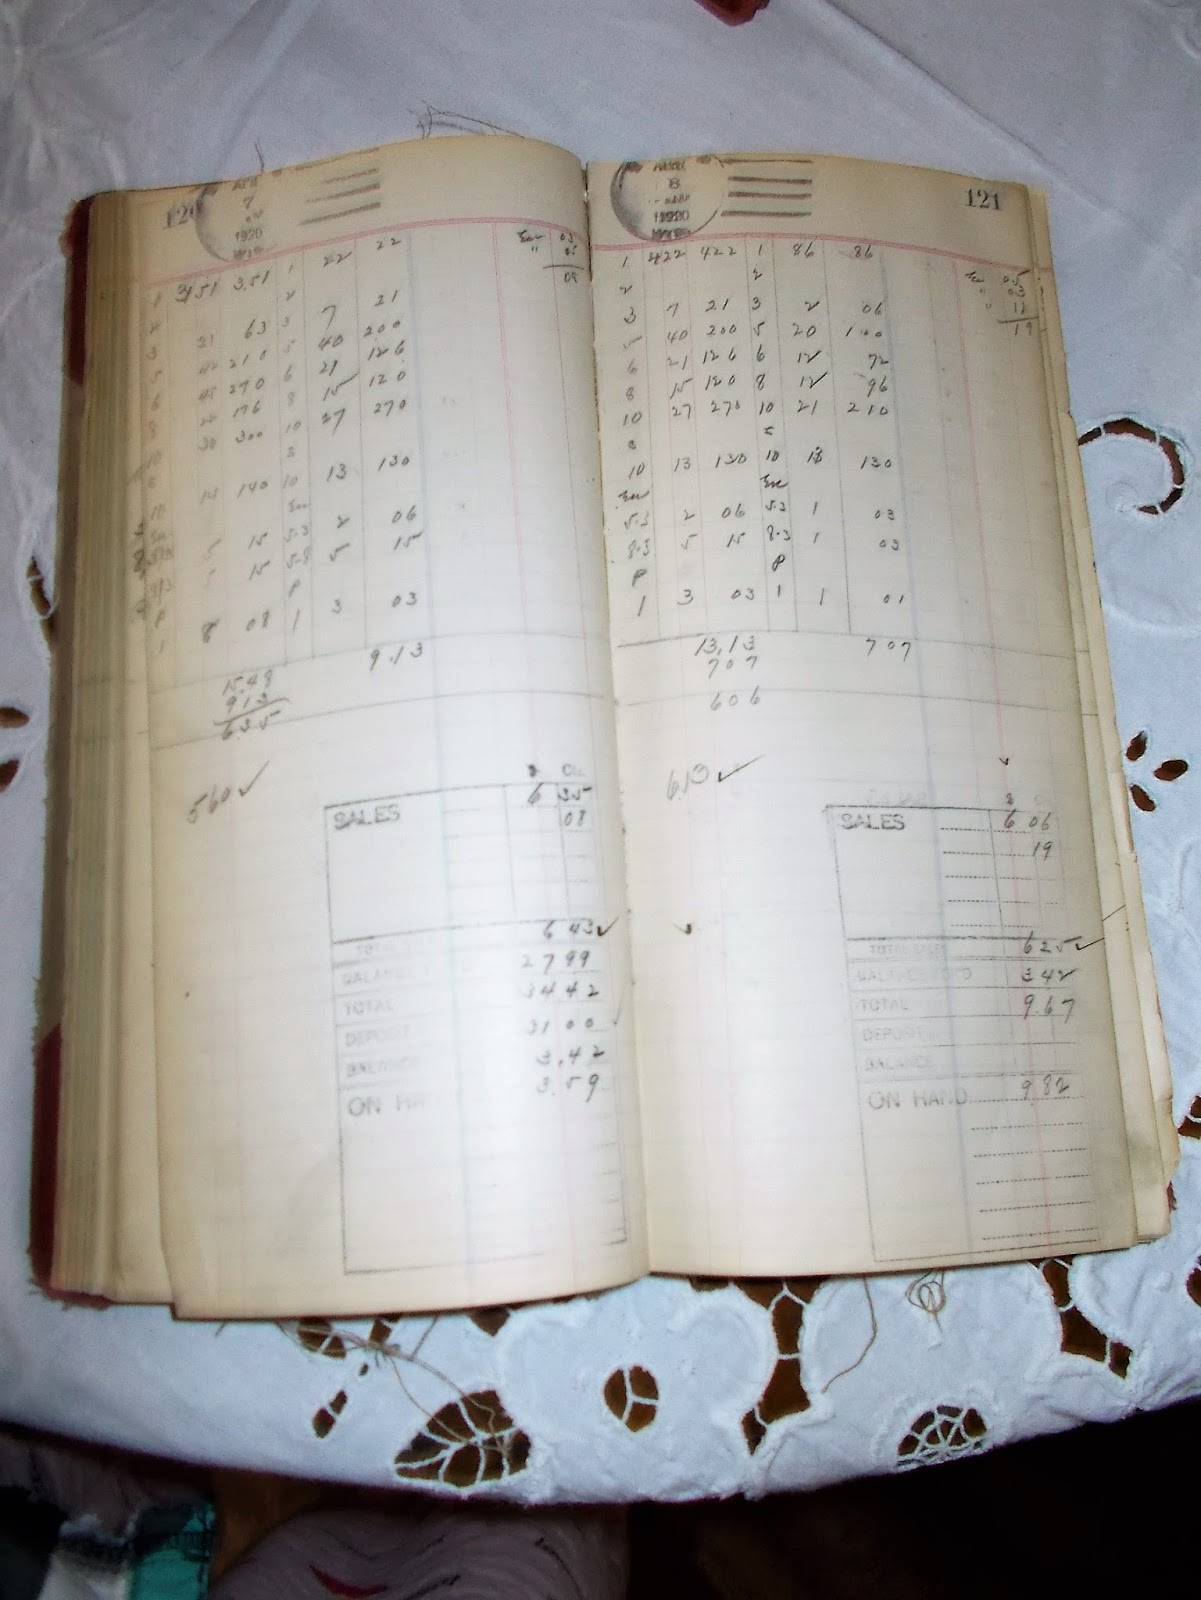 120
7
1920
3151 3.51 1 22 22
2
21 63 3 7 21
42 210 5 40 200
45 270 6 21 126
22 176 8 15 120
30 300 10 27 270
S
14 140 10 13 130
Env
5 15 5.3 2 06
15 5-8 5 15
P
8 08 1 3 03
9.13
15.48
913
6.35
560 ✓
SALES 6 35
08
6 43 ✓
BALANCE 27 99
TOTAL 34 42
DEPOSIT 31 00
BALANCE 3.42
ON HA 3.59
121
8
1920
1 422 422 1 86 86
2 2
3 7 21 3 2 06
5 40 200 5 20 1 00
6 21 126 6 12 72
8 15 120 8 12 96
10 27 270 10 21 210
10 13 130 10 13 130
Env Env
5.3 2 06 5.3 1 03
8.3 5 15 8.3 1 03
P P
1 3 03 1 1 01
13.13 7 07
7 07
6 06
05
03
11
19
613 ✓
SALES 6 06
19
TOTAL SALES 6 25 ✓
3 42
TOTAL 9.67
DEPOSIT
BALANCE
ON HAND 9.82